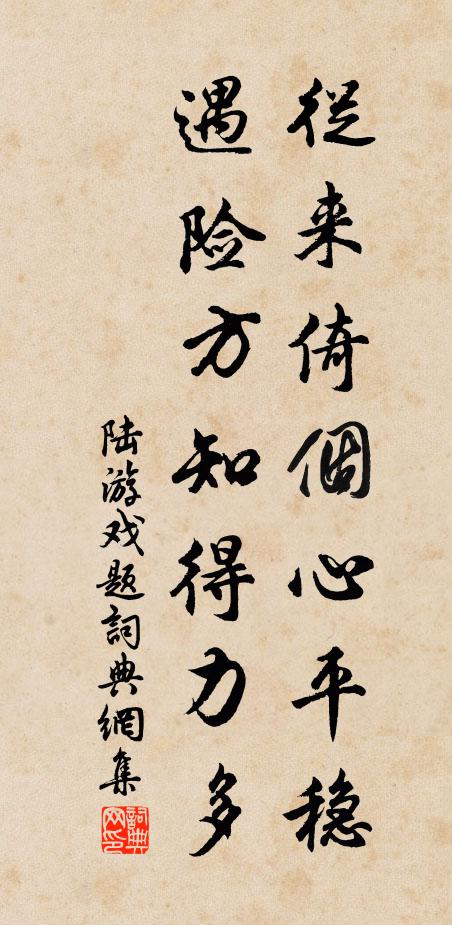 從来倚個心平穏
遇险方知得力多
陆游戏题詞典網集
詞典網印